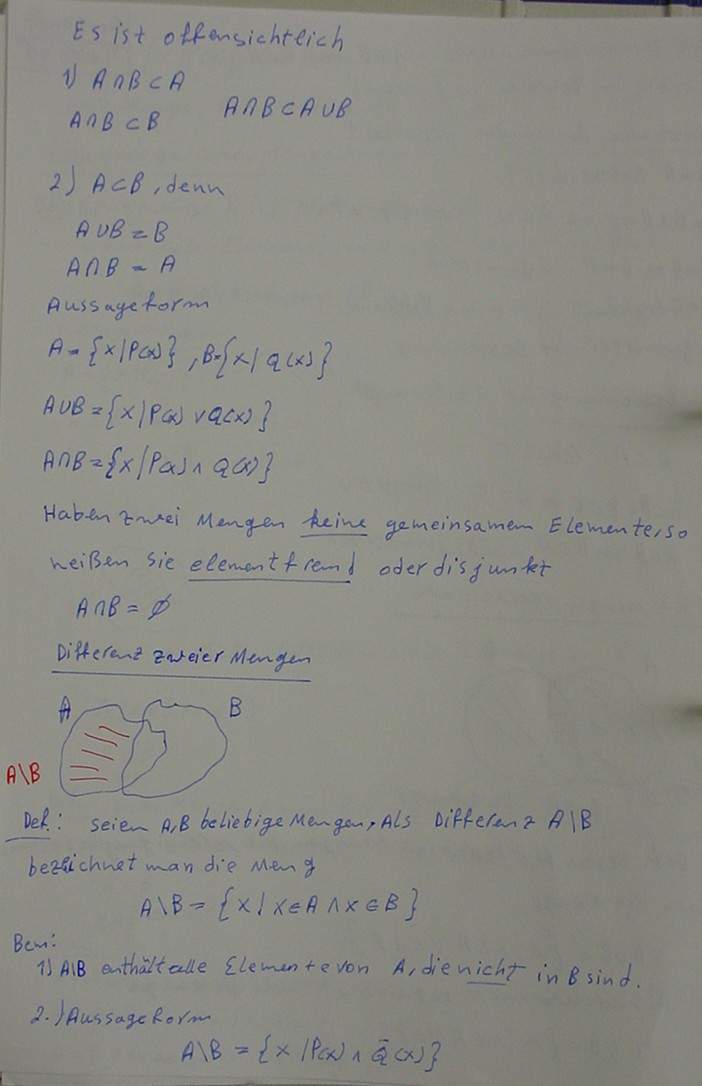 Es ist offensichtlich
1) A∩B ⊂ A
A∩B ⊂ B    A∩B ⊂ A∪B
2) A⊂B, denn
A∪B = B
A∩B = A
Aussageform
A = {x | P(x)}, B={x | Q(x)}
A∪B = {x | P(x) ∨ Q(x)}
A∩B = {x | P(x) ∧ Q(x)}
Haben zwei Mengen keine gemeinsamen Elemente, so
heißen sie elementfremd oder disjunkt
A∩B = ∅
Differenz zweier Mengen
A    B
A\B
Def.: seien A,B beliebige Mengen, Als Differenz A\B
bezeichnet man die Meng
A\B = {x | x∈A ∧ x∈B}
Bem:
1) A\B enthält alle Elemente von A, die nicht in B sind.
2.) Aussageform
A\B = {x | P(x) ∧ Q̄(x)}